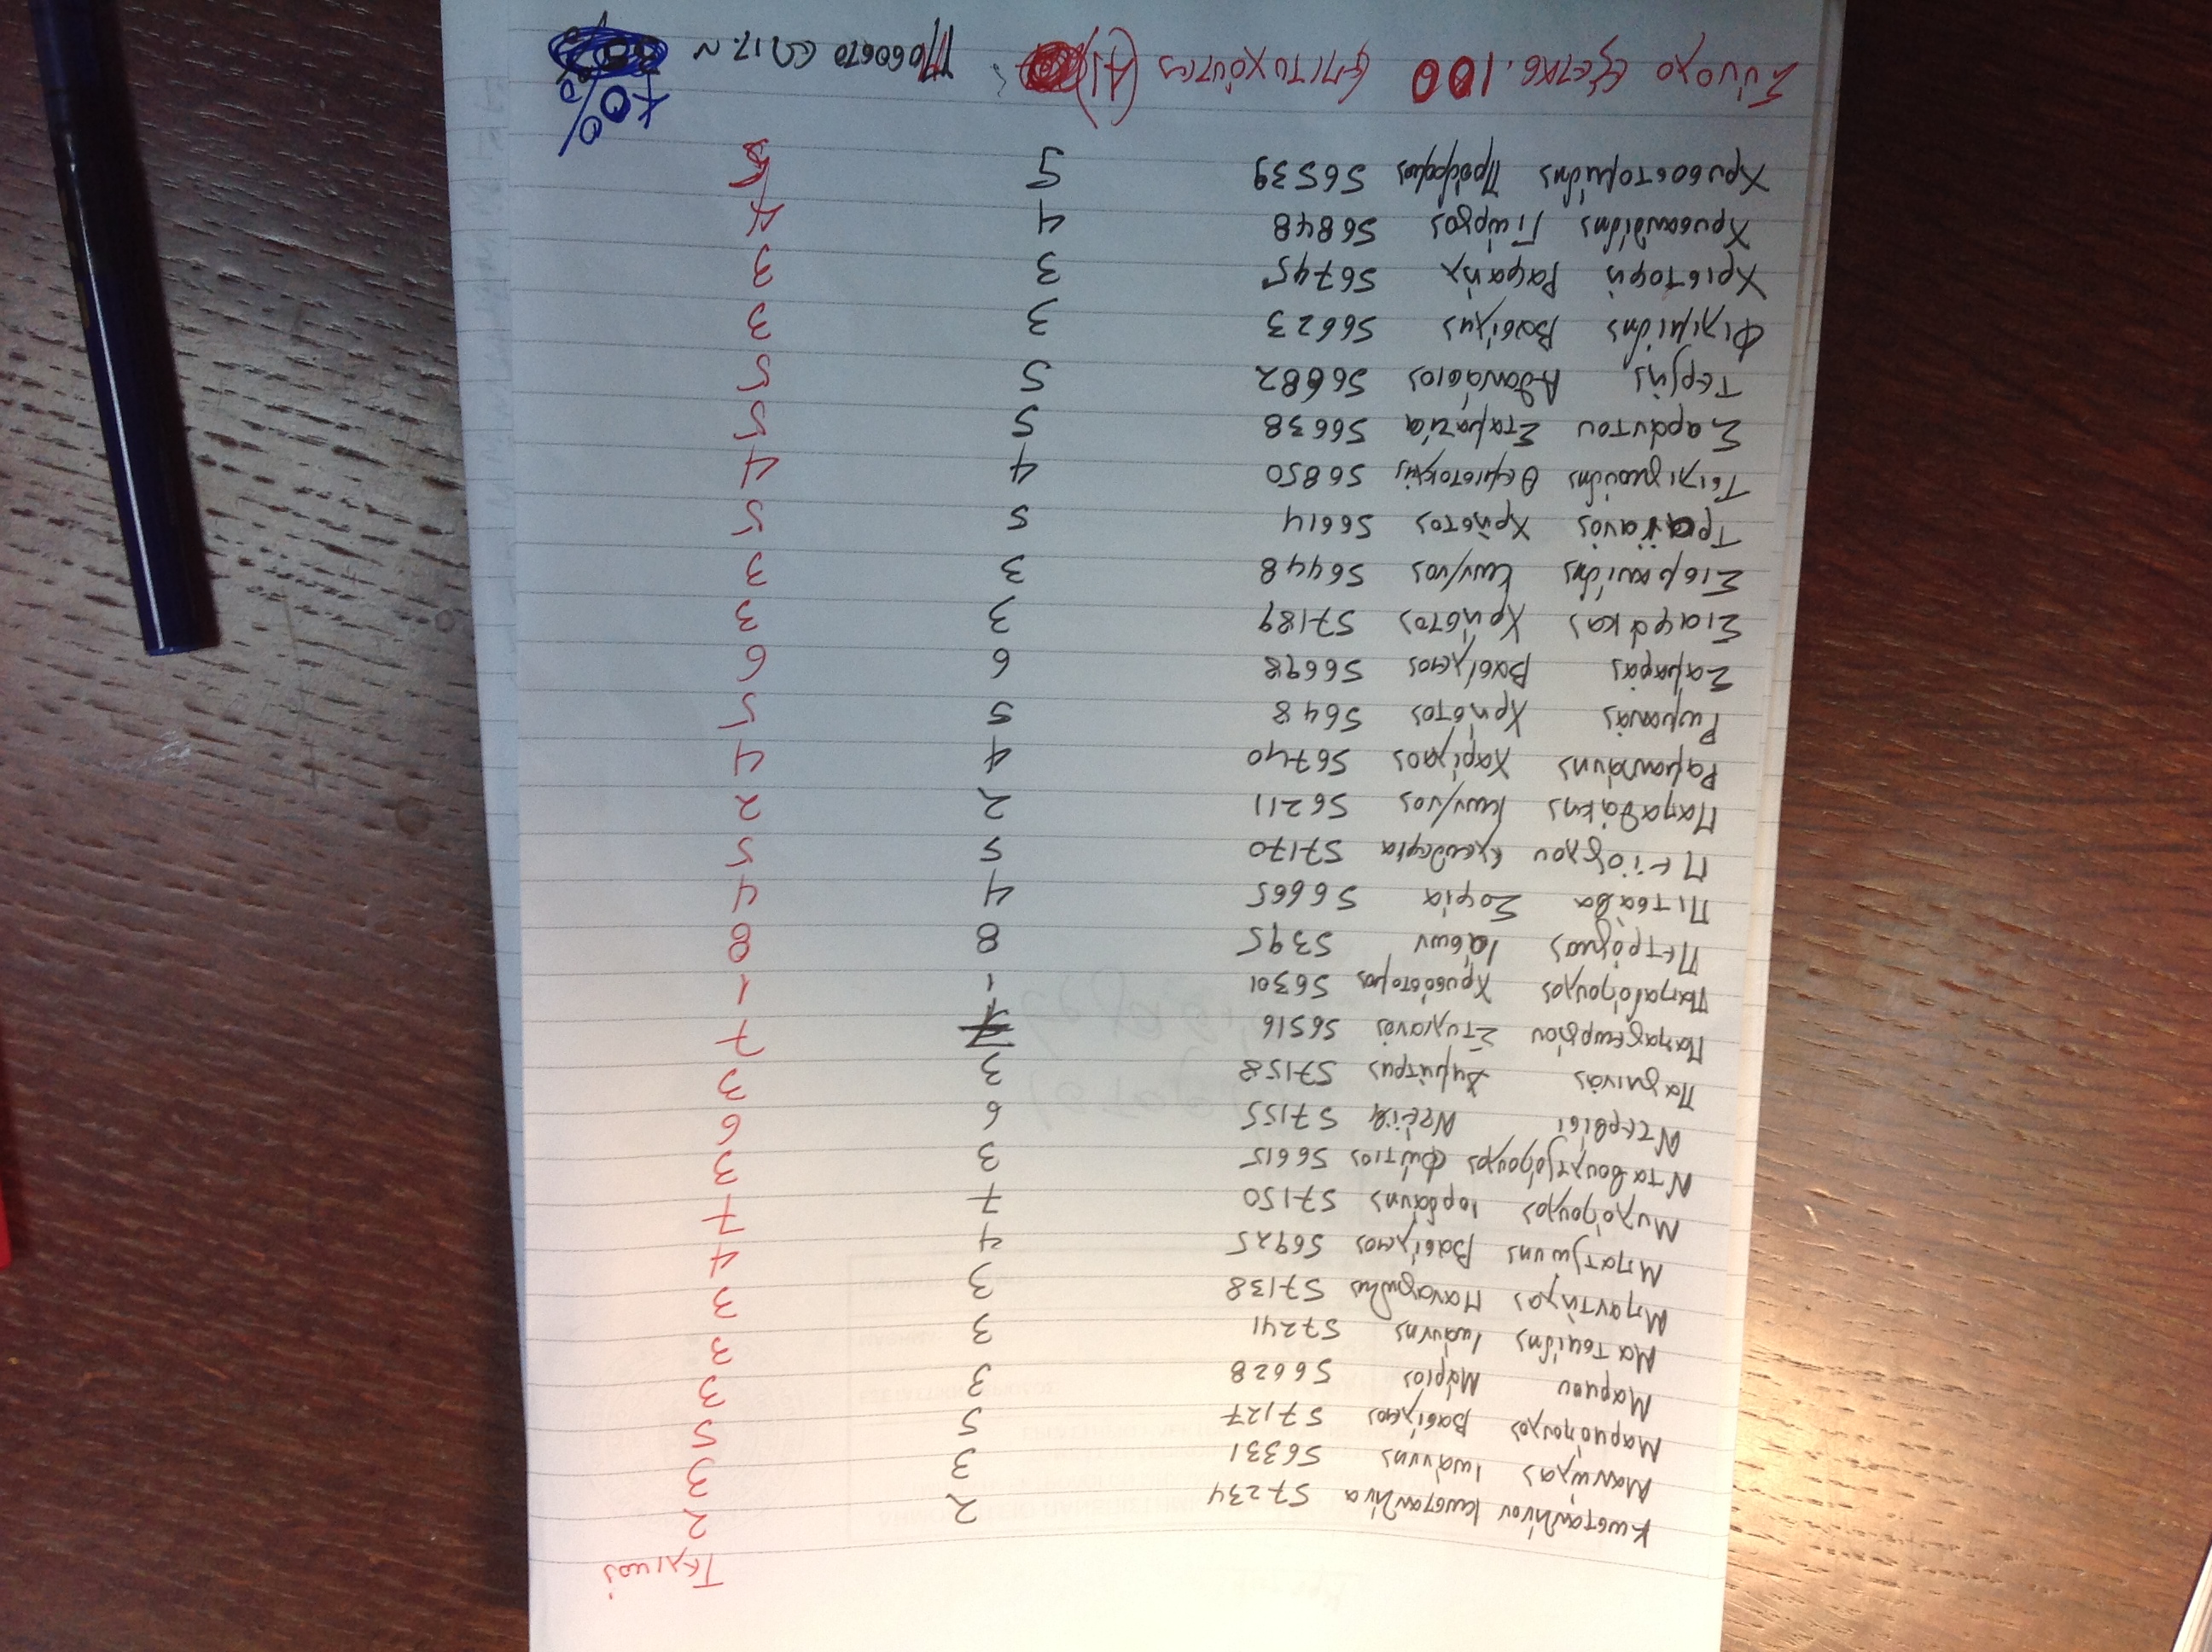 Τελικοί
Κωσταντίνου Κωσταντίνα 57234 2 2
Μανώλας Ιωάννης 56331 3 3
Μαρμόπουλος Βασίλειος 57127 5 5
Μάριος 56628 3 3
Ματσίδης Ιωάννης 57241 3 3
Μπαντίλας Παναγιώτης 57138 3 3
Μπατζώνης Βασίλειος 56925 4 4
Μυλόπουλος Ιορδάνης 57150 7 7
Νταβουλτζόπουλος Φώτιος 56615 3 3
Ντερβίσι 57155 6 6
Παγωνάς Δημήτρης 57158 3 3
Παπαγεωργίου Στυλιανός 56516 7 7
Παπαδόπουλος Χρυσόστομος 56301 1 1
Πετρόγιας Ιάσων 5395 8 8
Πιτσάβα Σοφία 56665 4 4
Πεϊόγλου Ελευθερία 57170 5 5
Παπαδάκης Κων/νος 56211 2 2
Ραμαντάνης Χαρίλαος 56740 4 4
Ρωμανάς Χρήστος 5648 5 5
Σαμαράς Βασίλειος 56698 6 6
Σιαφάκας Χρήστος 57189 3 3
Σισμανίδης Κων/νος 56448 3 3
Τραϊανός Χρήστος 56614 5 5
Τσιλιγκούδης Θεμιστοκλής 56850 4 4
Σαράντου Σταματία 56638 5 5
Τερζής Αθανάσιος 56682 5 5
Φιλιμίδης Βασίλης 56623 3 3
Χριστοφή Ραφαήλ 56745 3 3
Χρυσανθίδης Γιώργος 56848 4 4
Χρυσοστομίδης Πρόδρομος 56539 5 5
Σύνολο εξετασ. 100 Επιτυχόντες (41) Ποσοστό επιτ. ~ 40%